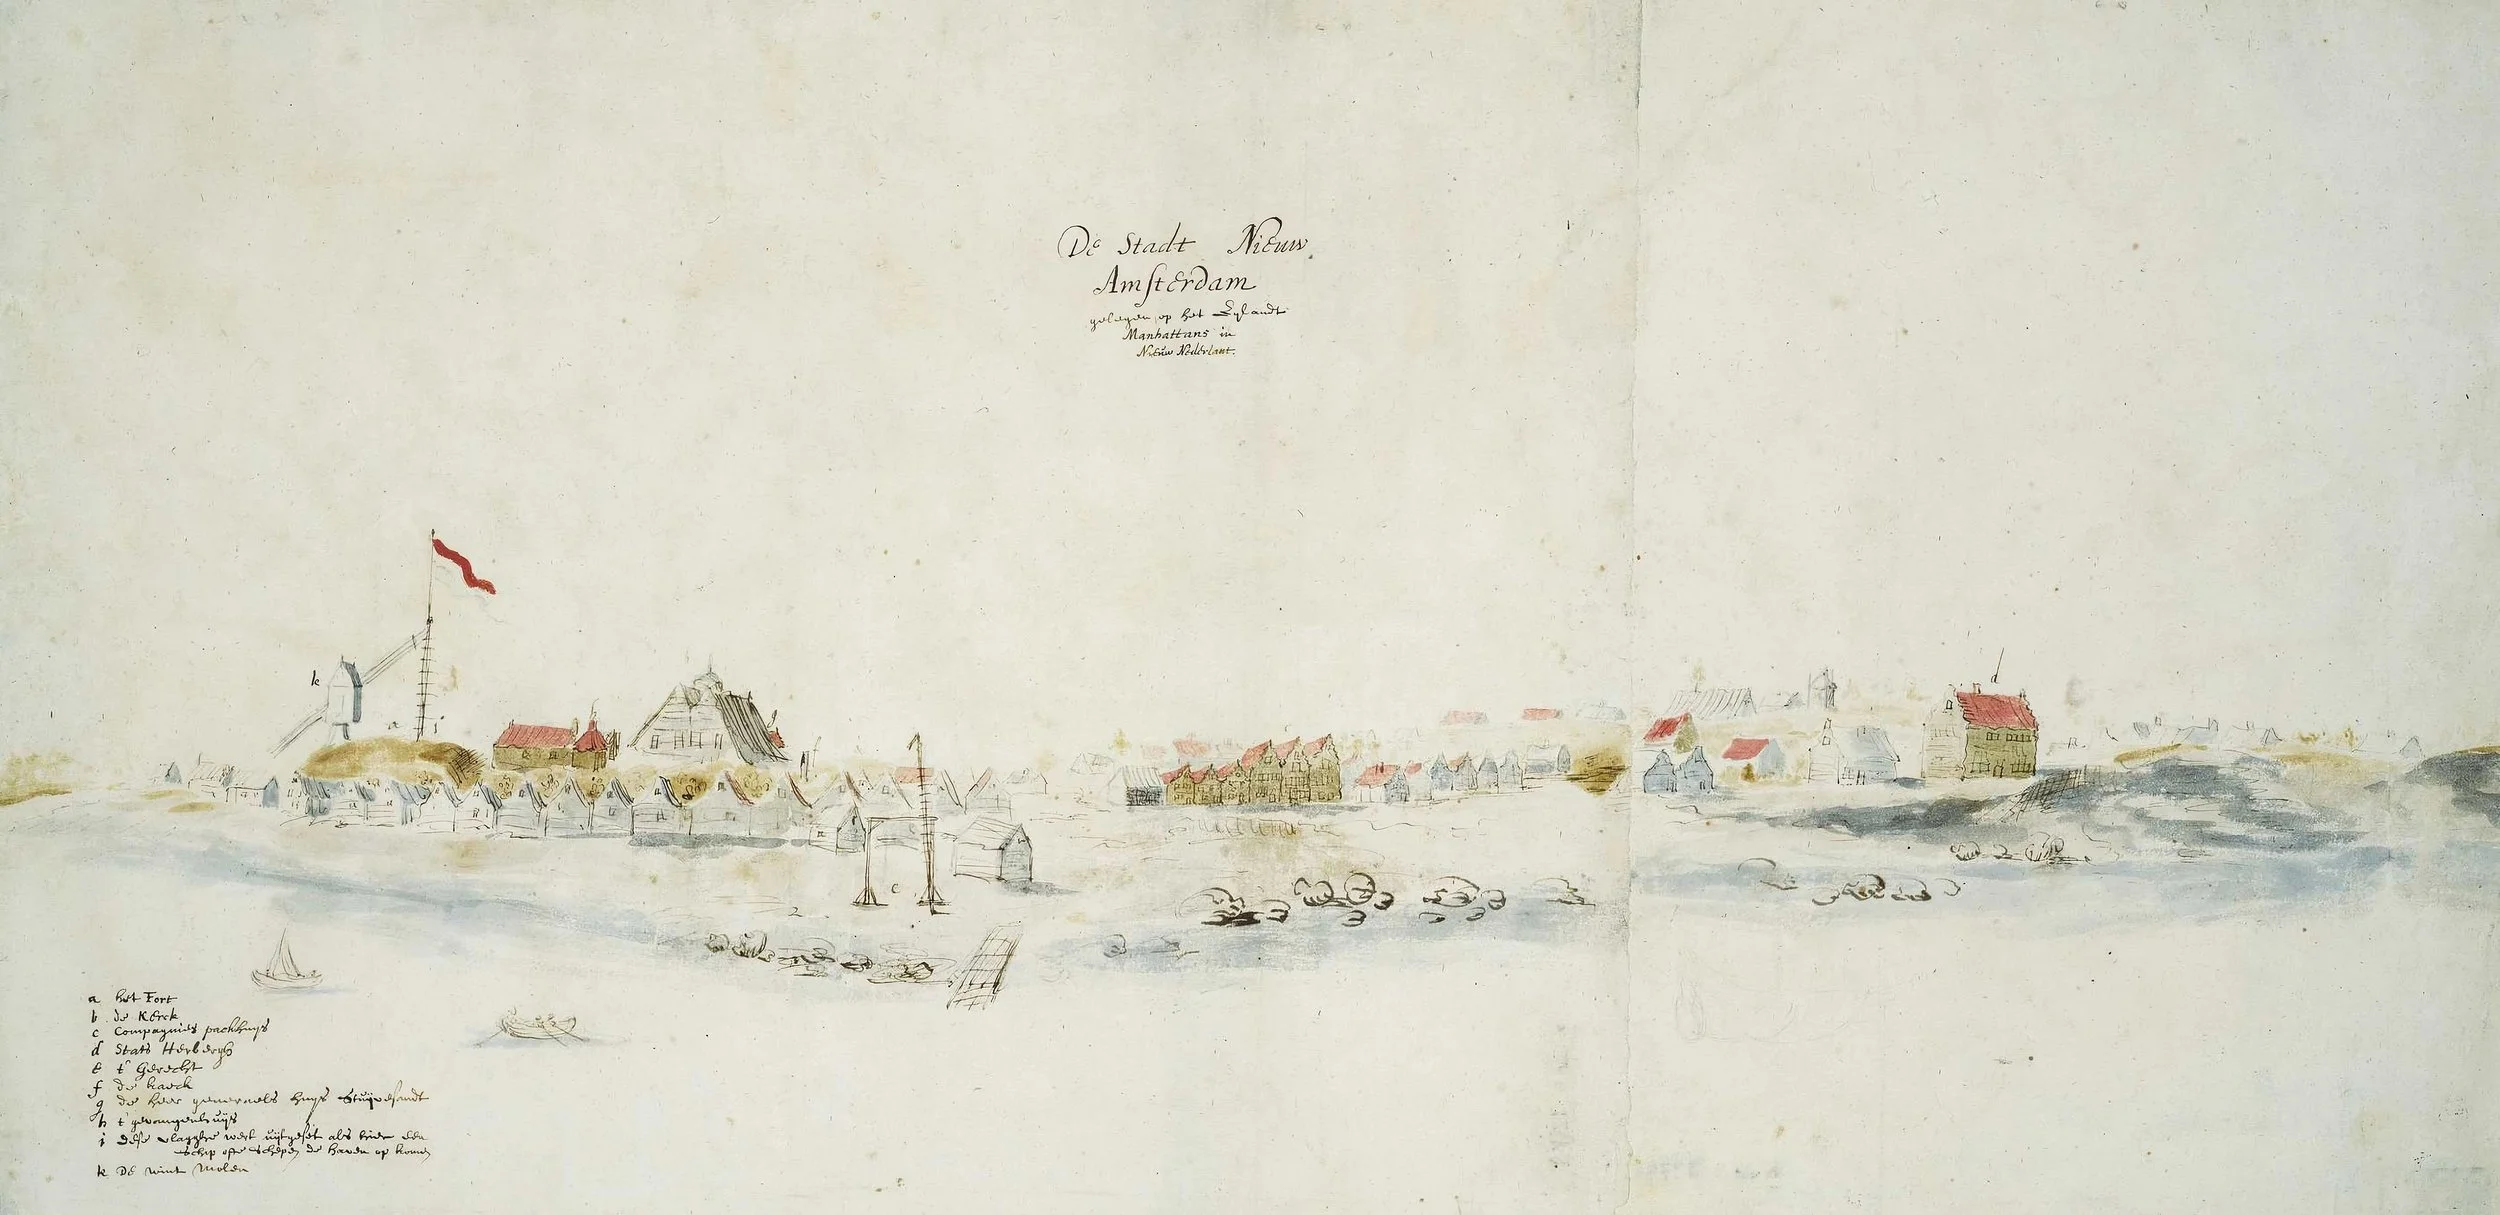 De Stadt Nieuw
Amsterdam
gelegen op het Eylandt
Manhattans in
Nieuw Nederlant.
k
a
i
f
d
c
a het Fort
b de Kerck
c Compagnies packhuys
d Stats Herbergh
e t' Gerecht
f de kaeck
g de heer generaels huys Stuijvesandt
h t'gevangenhuijs
i dese vlagghe wert uijtgeset als hier een
schip ofte schepen de haven op komen
k De wint Molen